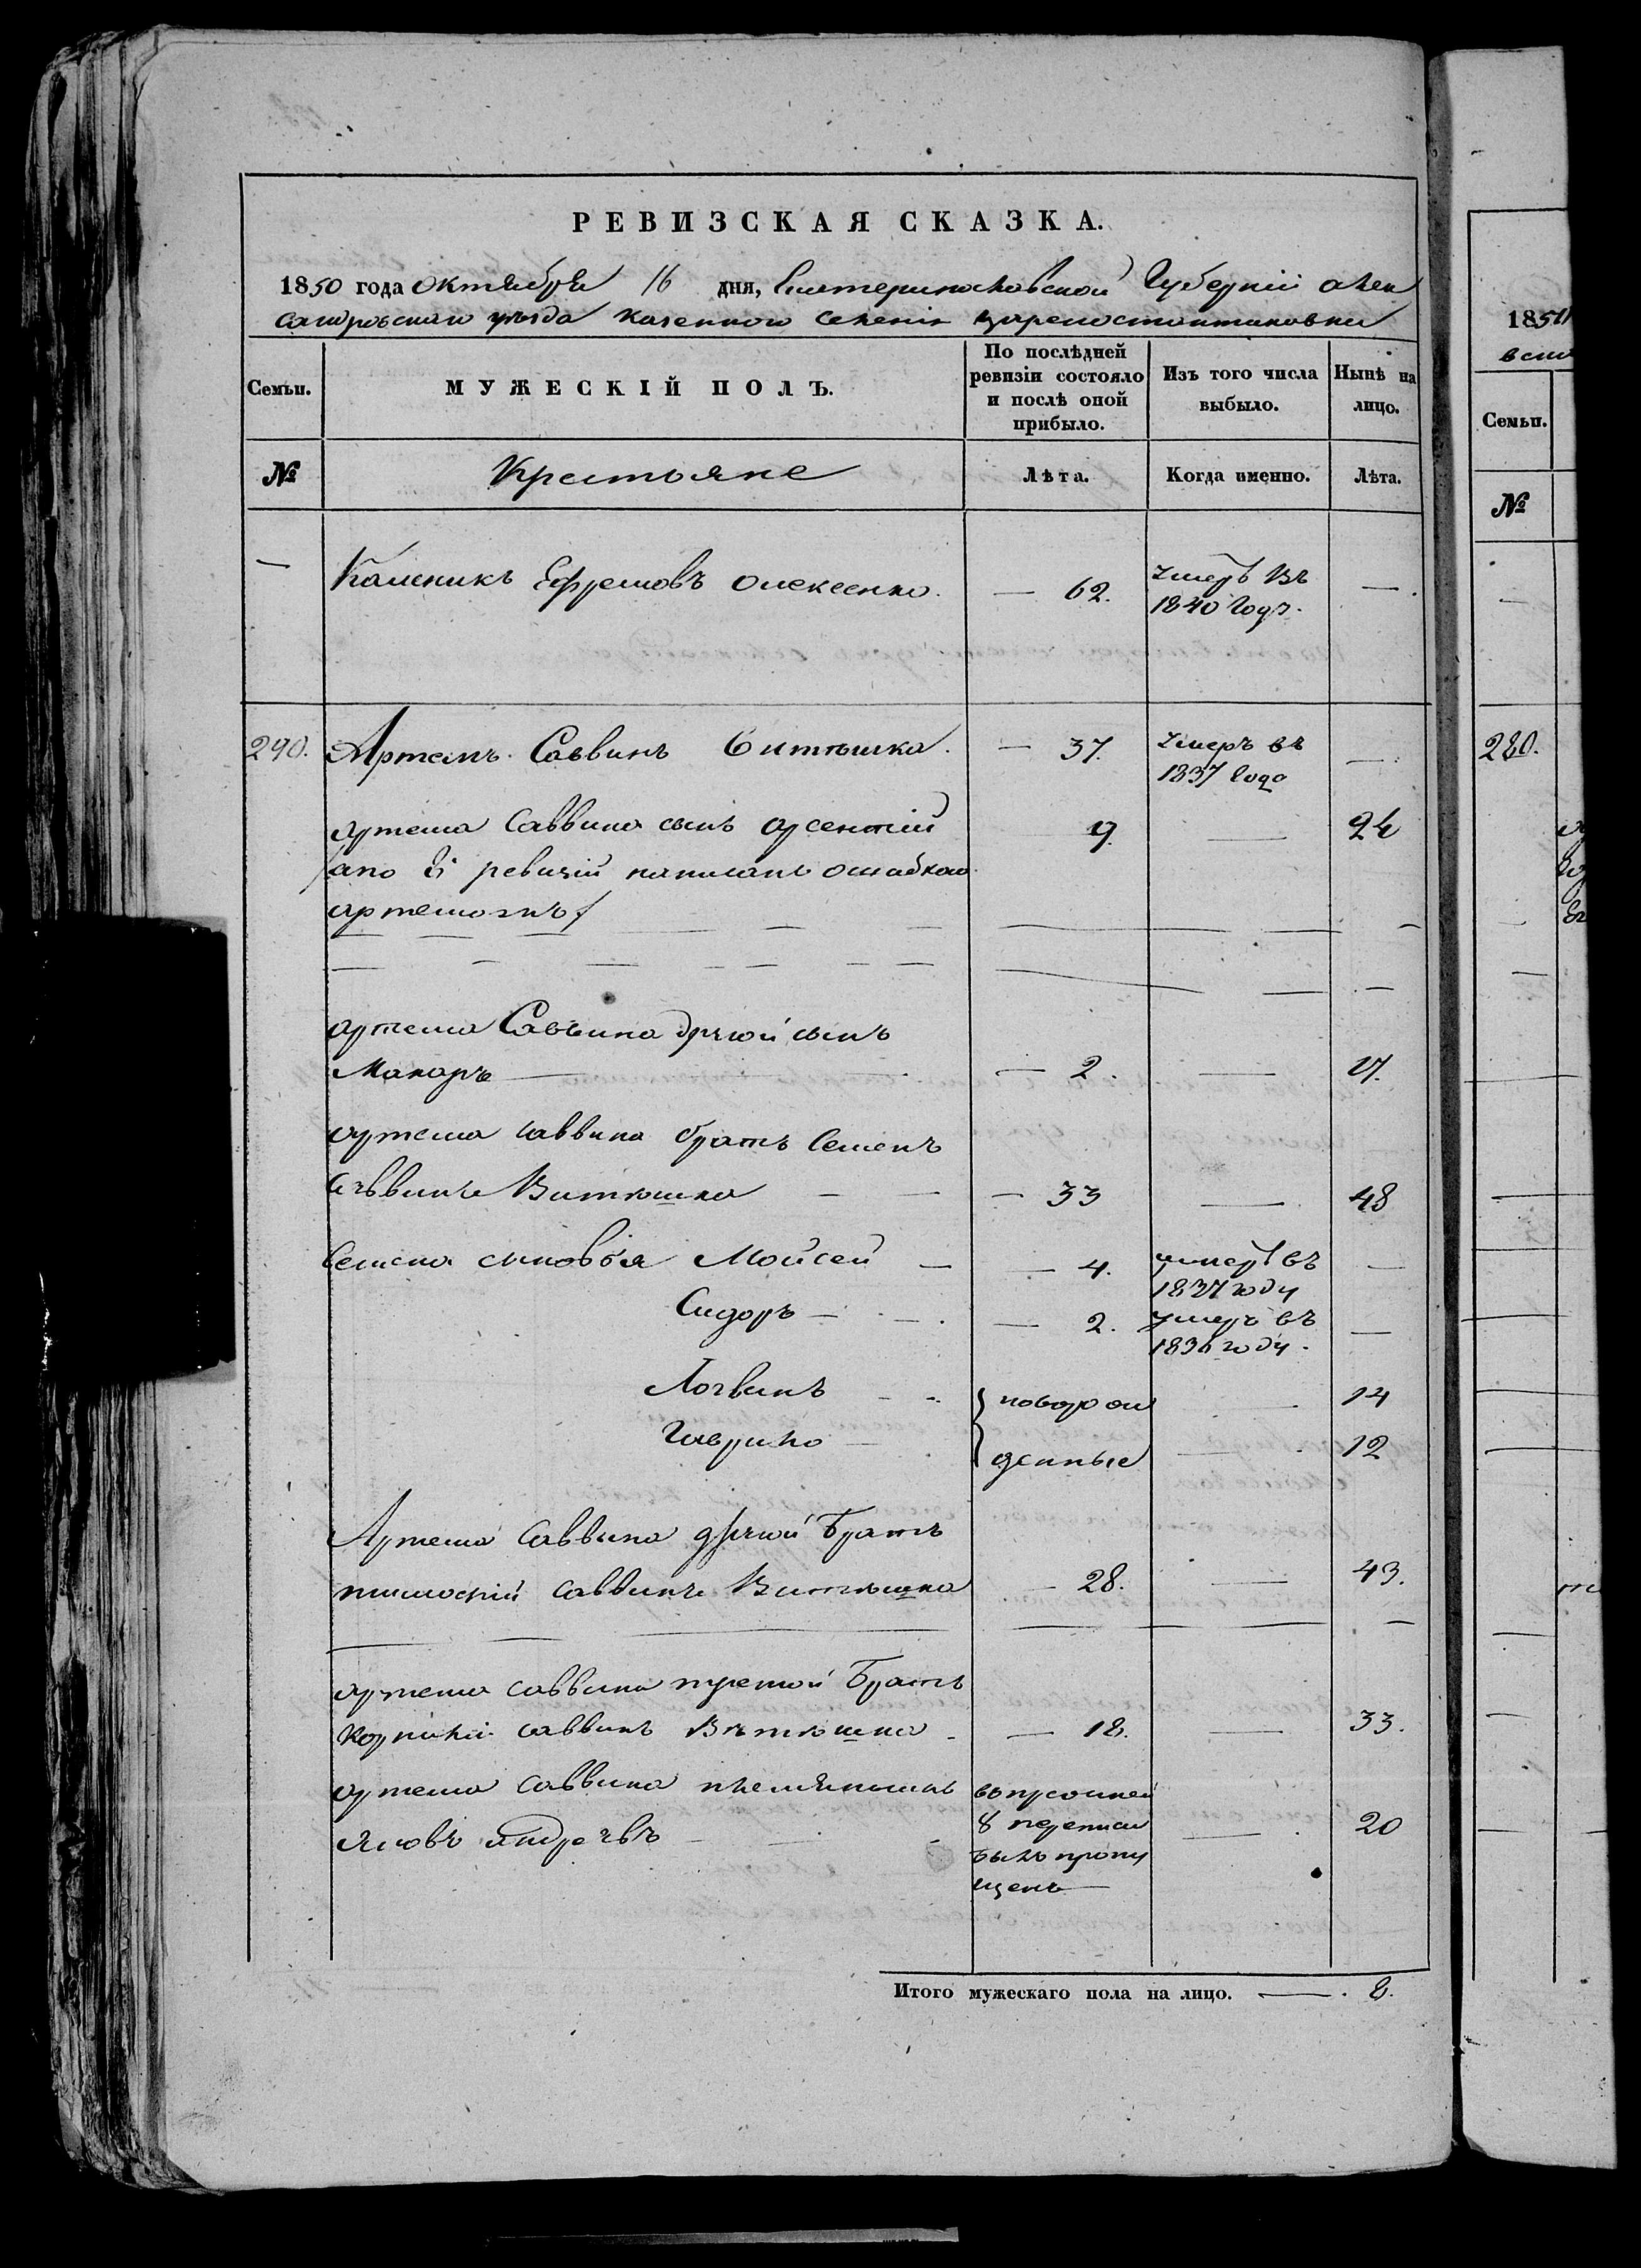 РЕВИЗСКАЯ СКАЗКА.
1850 года октября 16 дня, Екатеринославской Губернии алек
сандровскаго уезда казенного селения Цареконстантиновки
Семьи.
МУЖЕСКІЙ ПОЛЪ.
По послѣдней
ревизіи состояло
и послѣ оной
прибыло.
Изъ того числа
выбыло.
Нынѣ на
лицо.
№
Крестьяне
Лѣта.
Когда именно.
Лѣта.
— Каленикъ Ефремовъ Олексенко. — 62. умеръ въ —.
1840 годъ.
290. Артемъ Саввинъ Витюшка. — 37. умеръ въ —.
1837 года
артема Саввина сынъ арсентій 9. — 24
/а по 8й ревизіи написанъ ошибкою
артемонъ/
артема Саввина другой сынъ
Макаръ — — 2. — 17.
артема саввина братъ Семенъ
Саввинъ Витюшка — — 33 — 48
Семена сыновья Мойсей — — 4. умеръ въ —
1837 году
Сидоръ — — 2. умеръ въ —
1836 году.
Логвинъ — новорож — 14
Гаврило — денные — 12
Артема Саввина другой братъ
тимофій саввинъ Витюшка — 28. — 43.
артема саввина третой братъ
Корнікій саввинъ Витюшка — 18. — 33.
артема саввина племянникъ вопрошлой
Яковъ андреевъ — 8 переписи — 20
былъ пропу
щенъ —
Итого мужескаго пола на лицо. — 8.
1850
Семьи.
№
280.